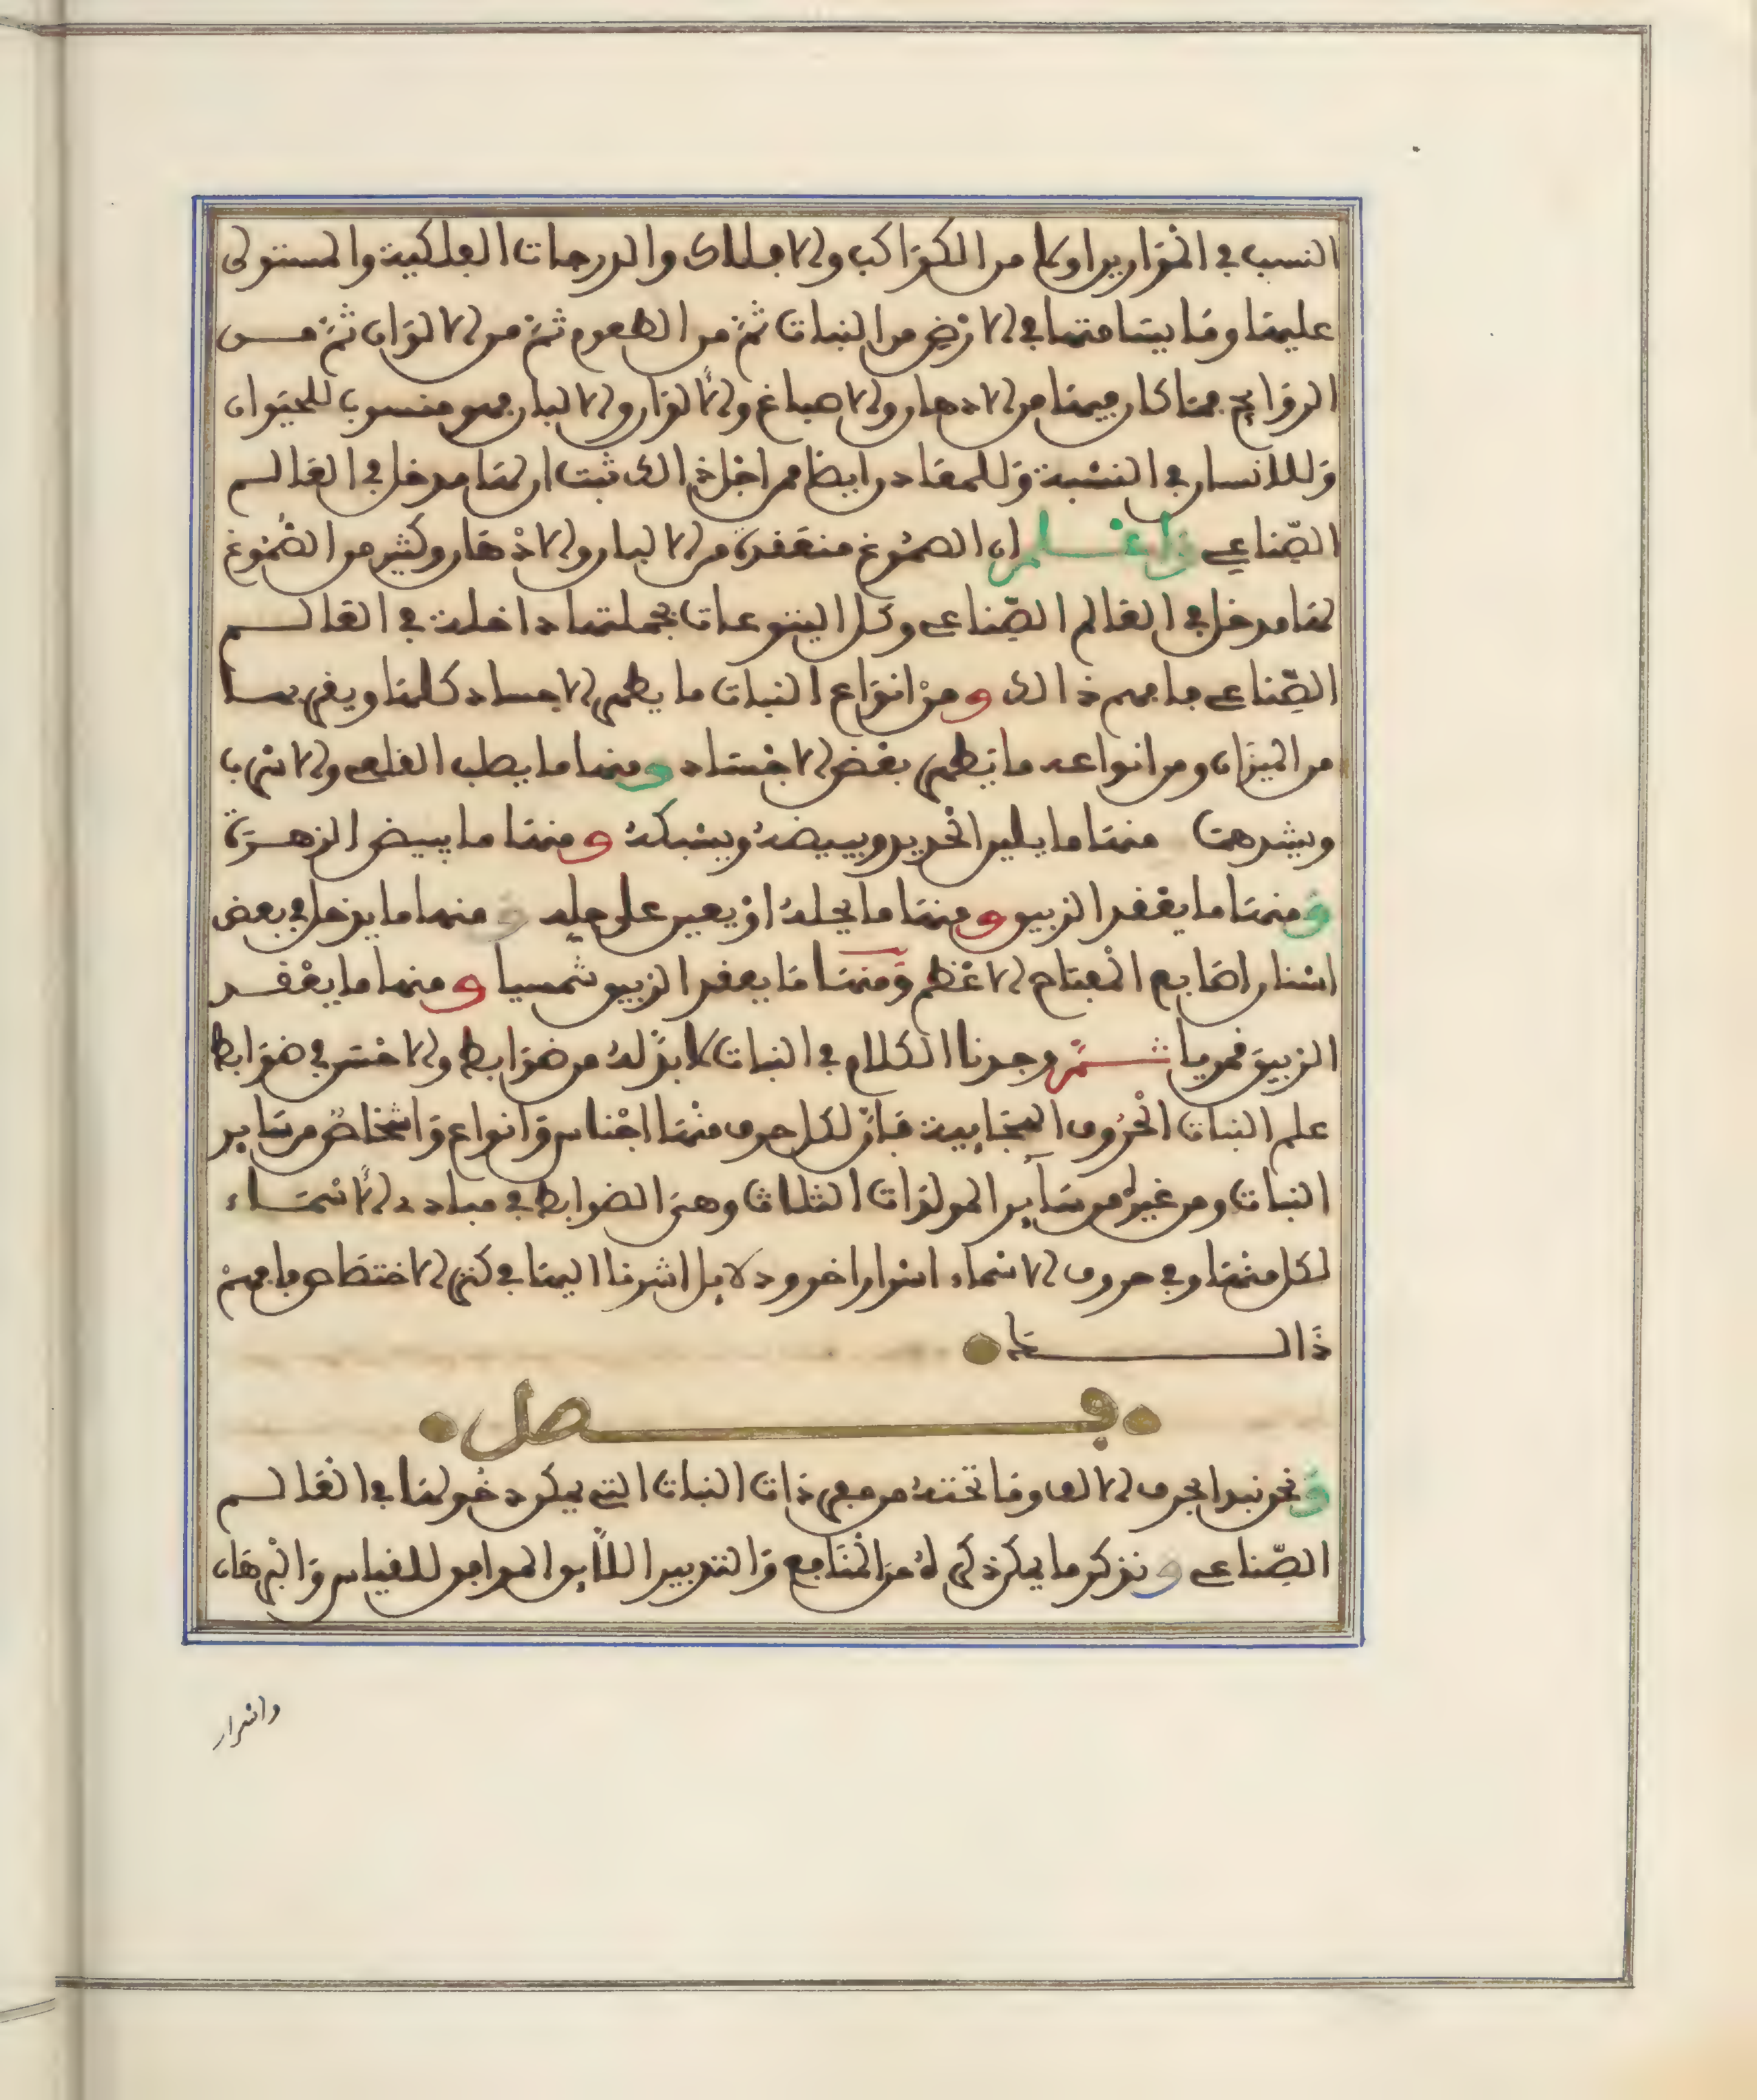 النسب في الموازين اولا من الكواكب والافلاك والدرجات الفلكية والمستولى
عليها وما يسامتها في الارض من النبات ثم من الطعوم ثم من الالوان ثم مــن
الروايح فما كان فيها من الادهان والاصباغ والالوان والالبان فهو منسوب للحيوان
وللانسان في النسبة وللمعادن ايضا فمن اجل ذالك ثبت ان لها مدخل في العالــم
الصّناعي واعــلم ان الصموغ منعقدة من الالبان والادهان وكثير من الصموغ
لها مدخل في العالم الصّناعي وكل اليتوعات بجملتها داخلة في العالــم
الصّناعي فافهم ذالك ومن انواع النبات ما يطهر الاجساد كلها ويقربهــا
من الميزان ومن انواعه ما يطهر بعض الاجساد ومنها ما يصلب القلعي والاسرب
ويشدهما منها ما يلين الحديد ويبيضه ويسبكه ومنها ما يبيض الزهــرة
ومنها ما يعقد الزيبق ومنها ما يحله او يعين على حله ومنها ما يدخل في بعض
اسنان اصابع المفتاح الاعظم ومنها ما يعقد الزيبق شمسيا ومنها ما يعقــد
الزيبق قمريا ثــمّ وجدنا الكلام في النبات لابدّ له من ضوابط والاحسن في ضوابط
علم النبات الحروف الهجايية فانّ لكل حرف منها اجناس وانواع واشخاص من ساير
النبات ومن غيره من ساير المولدات الثلاث وهي الضوابط في مبادي الاسمــاء
لكل منها وفي حروف الاسماء اسرار اخر ودلايل اشرنا اليها في كنز الاختصاص فافهم
ذالــــك
فــــصل
ونحن نبدا بحرف الالف وما تحته من مفردات النبات التي يمكن دخولها في العالــم
الصّناعي ونذكر ما يمكن ذكره له من المنافع والتدبير اللايق الموافق للقياس والبرهان
واسرار